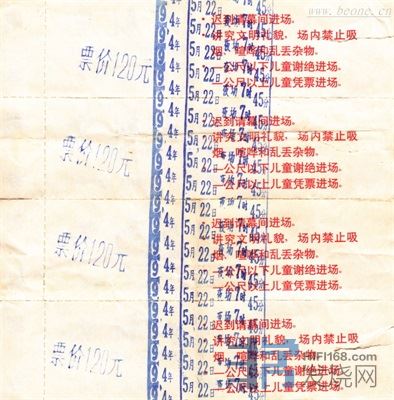 www.beone.cn
迟到请幕间进场。
讲究文明礼貌，场内禁止吸
烟、喧哗和乱丢杂物。
一公尺以下儿童谢绝进场。
一公尺以上儿童凭票进场。
票价120元
1994年 5月22日 夜场7时45分
迟到请幕间进场。
讲究文明礼貌，场内禁止吸
烟、喧哗和乱丢杂物。
一公尺以下儿童谢绝进场。
一公尺以上儿童凭票进场。
票价120元
1994年 5月22日 夜场7时45分
迟到请幕间进场。
讲究文明礼貌，场内禁止吸
烟、喧哗和乱丢杂物。
一公尺以下儿童谢绝进场。
一公尺以上儿童凭票进场。
票价120元
1994年 5月22日 夜场7时45分
迟到请幕间进场。
讲究文明礼貌，场内禁止吸
烟、喧哗和乱丢杂物。
一公尺以下儿童谢绝进场。
一公尺以上儿童凭票进场。
票价120元
1994年 5月22日 夜场7时45分
HIFI168.com
发烧网